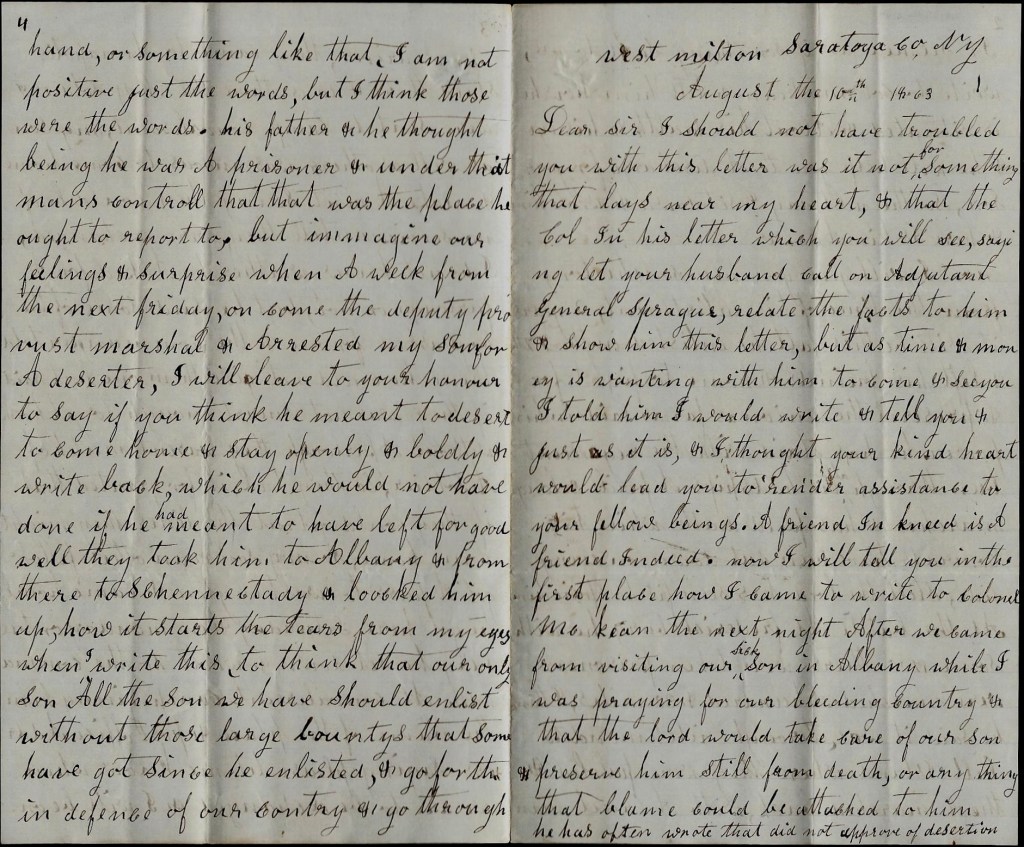 4
hand, or something like that, I am not
positive just the words, but I think those
were the words. his father & he thought
being he was A prisoner & under that
mans controll that that was the place he
ought to report to, but immagine our
feelings & surprise when A week from
the next friday, on come the deputy pro
vust marshal & Arrested my son for
A deserter, I will leave to your honour
to say if you think he meant to desert
to come home & stay openly & boldly &
write back, which he would not have
done if he had meant to have left for good
well they took him to Albany & from
there to Schennectady & loocked him
up, how it starts the tears from my eyes
when I write this, to think that our only
son All the son we have should enlist
without those large bountys that some
have got since he enlisted, & go forth
in defence of our contry & go through
west milton Saratoga Co, N y
August the 10th 1863 1
Dear Sir I should not have troubled
you with this letter was it not for something
that lays near my heart, & that the
Col In his letter which you will see, sayi
ng let your husband call on Adjutant
General Sprague, relate the facts to him
& show him this letter, but as time & mon
ey is wanting with him to come & see you
I told him I would write & tell you &
just as it is, & I thought your kind heart
would lead you to render assistance to
your fellow beings. A friend In kneed is A
friend Indeed. now I will tell you in the
first place how I came to write to Colonel
Mc kean the next night After we came
from visiting our sick son in Albany while I
was praying for our bleeding Country &
that the lord would take care of our son
& preserve him still from death, or any thing
that blame could be attached to him
he has often wrote that did not approve of desertion